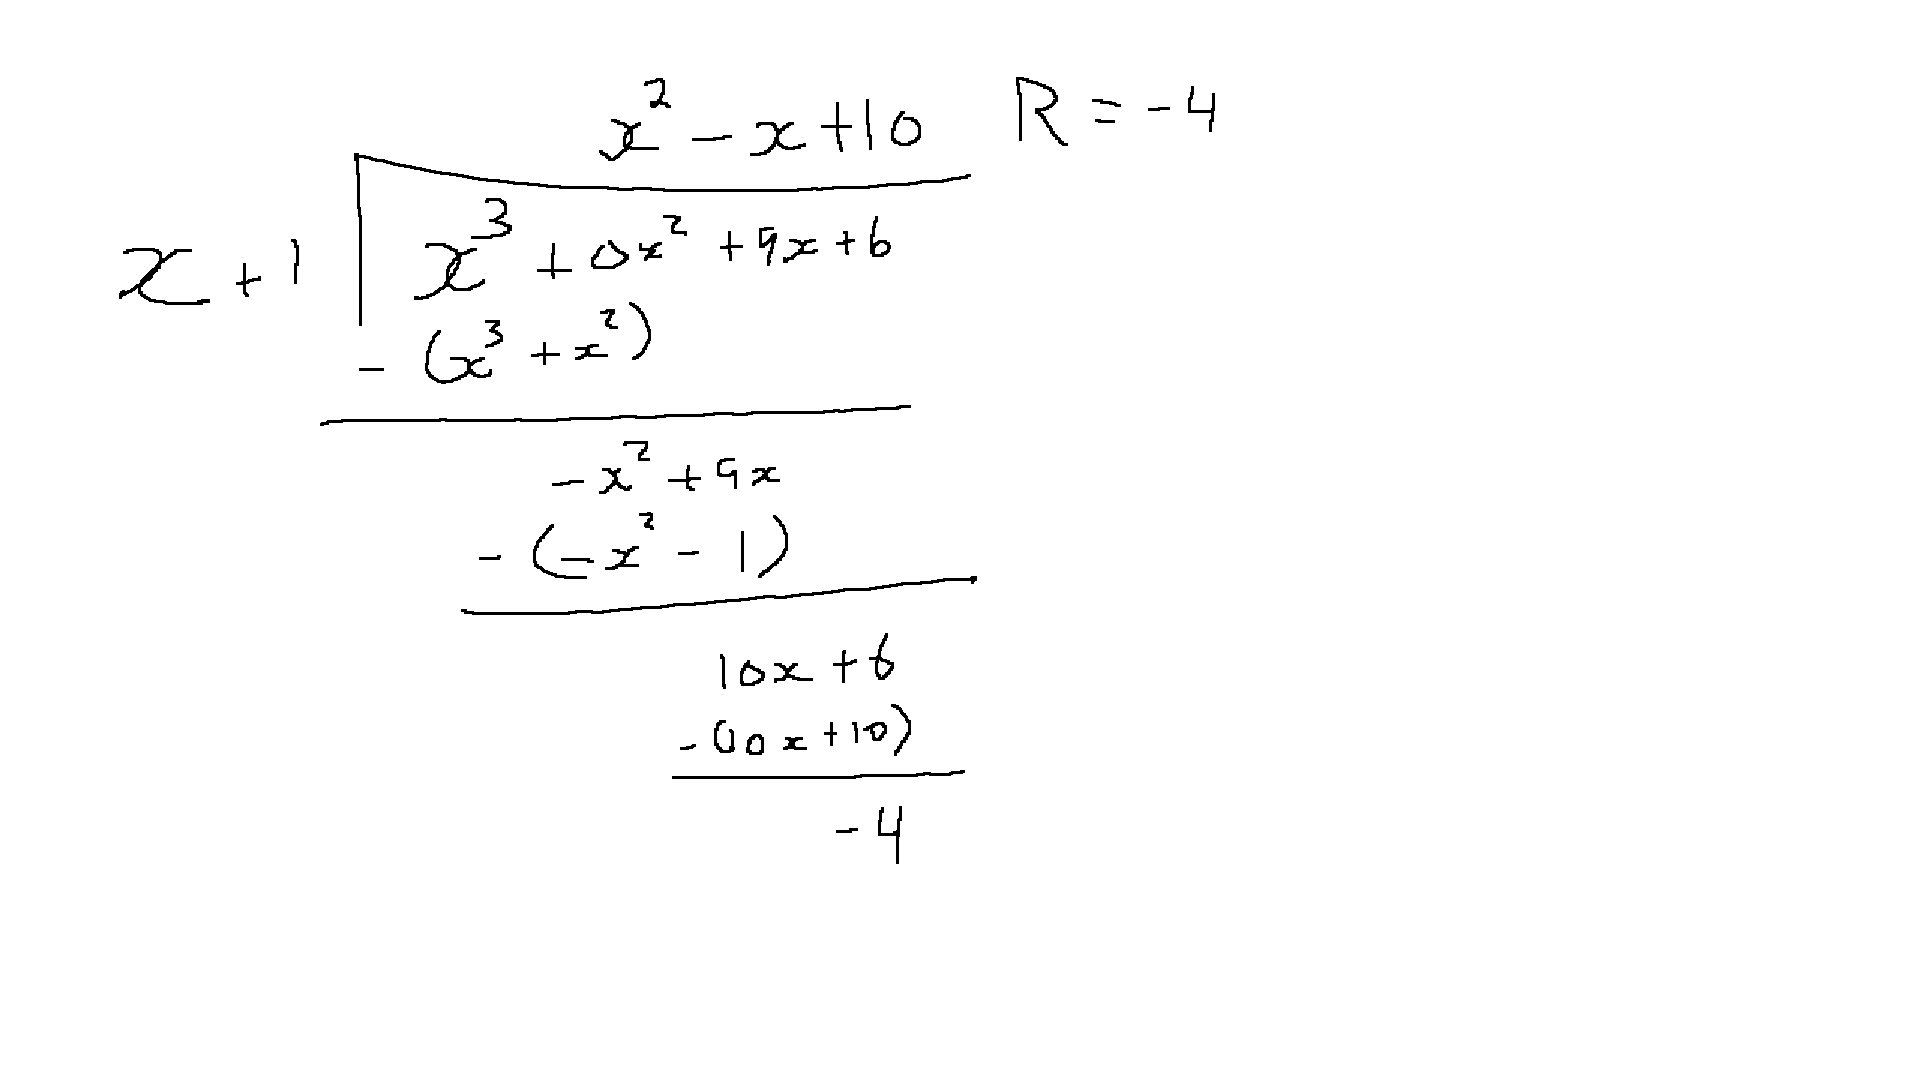 x² - x + 10 R = -4
x + 1 x³ + 0x² + 9x + 6
- (x³ + x²)
-x² + 9x
- (-x² - 1)
10x + 6
- (10x + 10)
-4